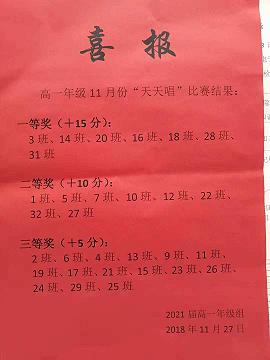 喜 报
高一年级 11 月份“天天唱”比赛结果:
一等奖（+15 分）:
3 班、14 班、20 班、16 班、18 班、28 班、
31 班
二等奖（+10 分）:
1 班、5 班、7 班、10 班、12 班、22 班、
32 班、27 班
三等奖（+5 分）:
2 班、6 班、4 班、13 班、9 班、11 班、
19 班、17 班、21 班、15 班、23 班、26 班、
24 班、29 班、25 班
2021 届高一年级组
2018 年 11 月 27 日